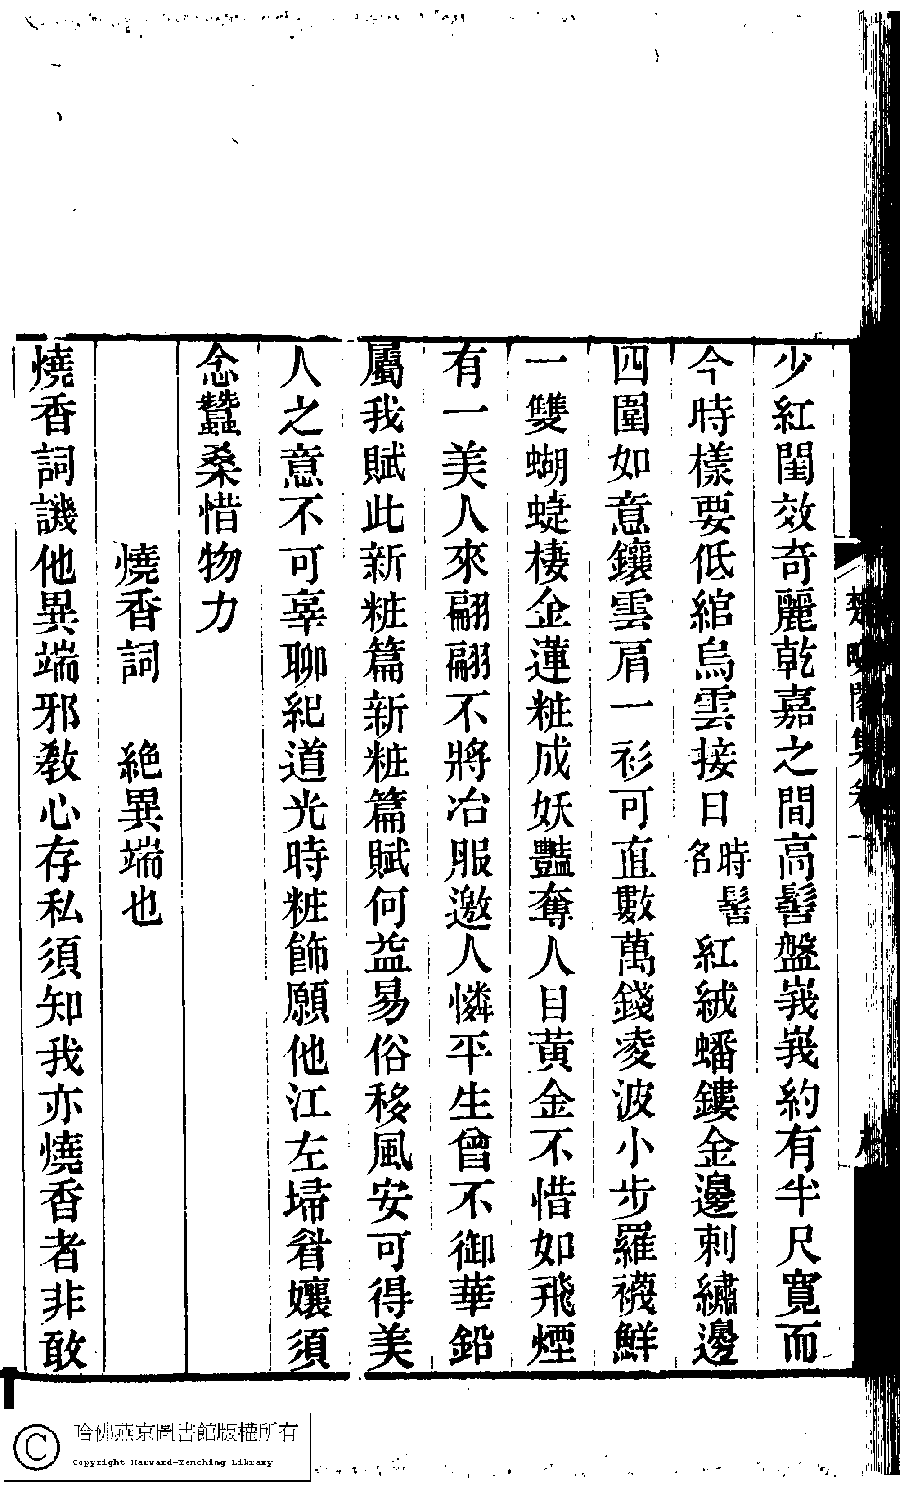 少紅閨效奇麗乾嘉之間高髻盤峩峩約有半尺寬而
今時樣要低綰烏雲接日時髻名紅絨蟠鏤金邊刺繡邊
四圍如意鑲雲肩一衫可直數萬錢凌波小步羅襪鮮
一雙蝴蜨棲金蓮粧成妖豔奪人目黃金不惜如飛煙
有一美人來翩翩不將冶服邀人憐平生曾不御華鉛
屬我賦此新粧篇新粧篇賦何益易俗移風安可得美
人之意不可辜聊紀道光時粧飾願他江左埽眉孃須
念蠶桑惜物力
燒香詞　絕異端也
燒香詞譏他異端邪教心存私須知我亦燒香者非敢
哈佛燕京圖書館版權所有
Copyright Harvard-Yenching Library